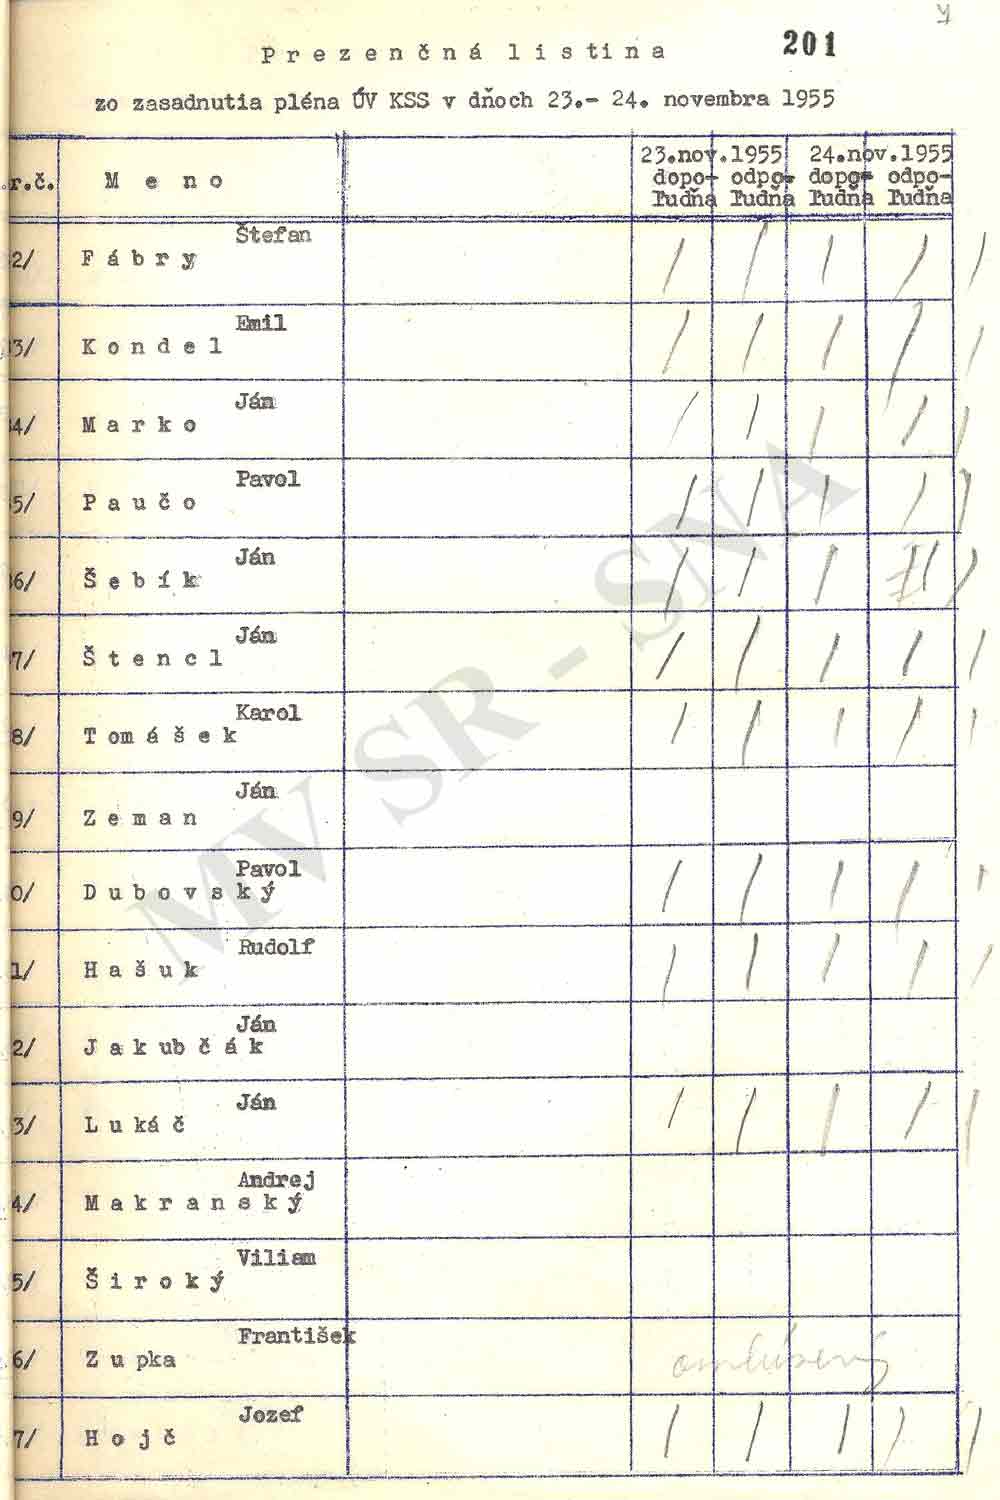 201
Prezenčná listina
zo zasadnutia pléna ÚV KSS v dňoch 23.- 24. novembra 1955
r.č. Meno 23.nov.1955 24.nov.1955
dopo- odpo- dopo- odpo-
ľudňa ľudňa ľudňa ľudňa
Štefan
2/ Fábry
Emil
3/ Kondel
Ján
4/ Marko
Pavol
5/ Paučo
Ján
6/ Šebík
Ján
7/ Štencl
Karol
8/ Tomášek
Ján
9/ Zeman
Pavol
0/ Dubovský
Rudolf
1/ Hašuk
Ján
2/ Jakubčák
Ján
3/ Lukáč
Andrej
4/ Makranský
Viliam
5/ Široký
František
6/ Zupka
Jozef
7/ Hojč
MV SR - SNA